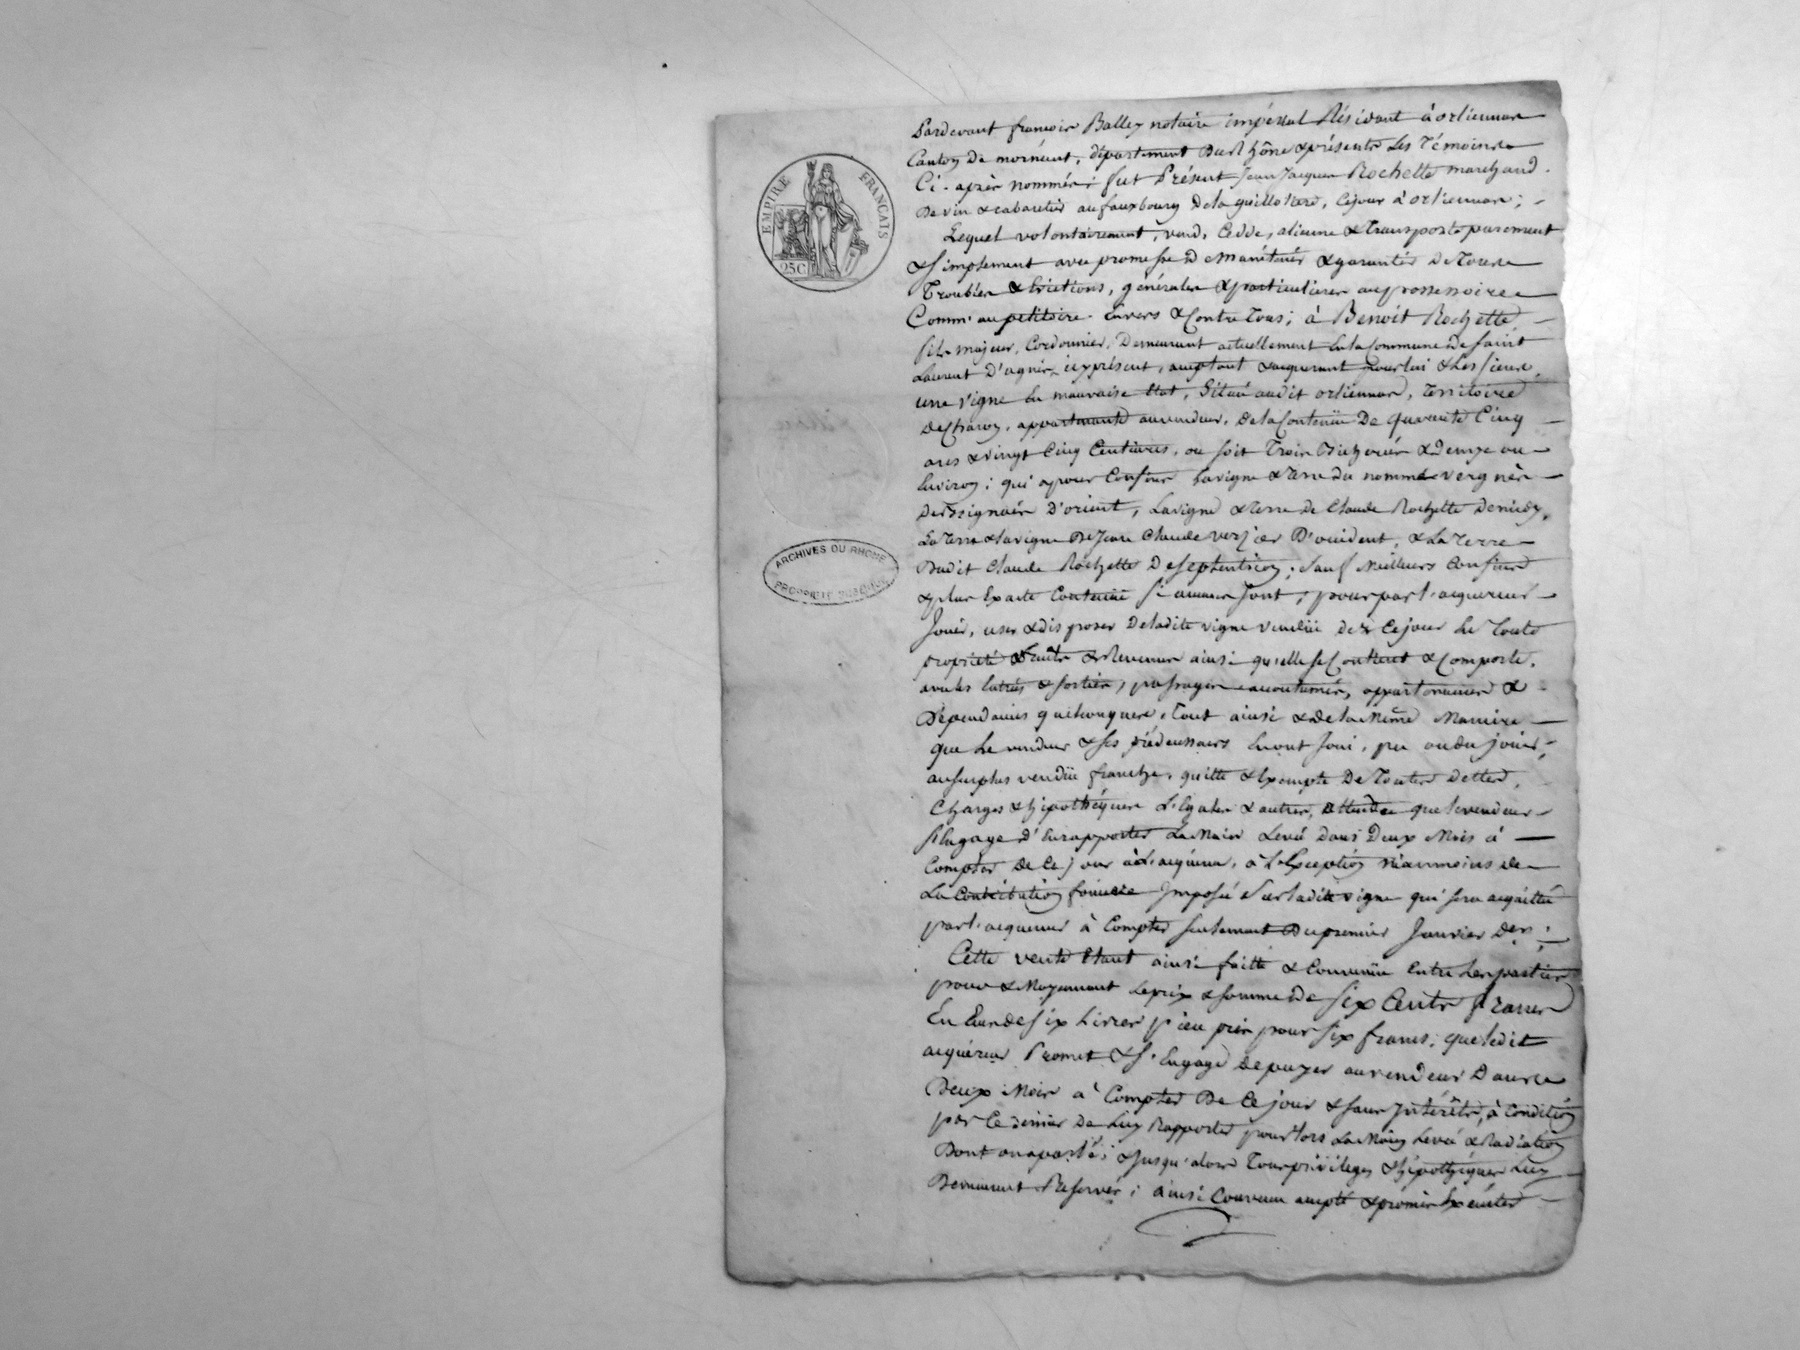 EMPIRE FRANÇAIS
25C
ARCHIVES DU RHONE
PROPRIETE PUBLIQUE
Pardevant françois Balley notaire impérial Résidant à orliennas
Canton de mornant, département Du Rhône & présents Les Témoins
Ci-après nommés; fut Présent Jean Jacques Rochette marchand
De vin & cabaretier au fauxbourg De la guillotiere, Cejour à orliennas;
Lequel volontairement, vend, Cedde, aliene & transporte purement
& simplement avec promesse De Maintenir & garantir De Tous
Troubles & Evictions, générales & particulieres au possessoire
Comm' au petitoire envers & Contre Tous; à Benoit Rochette,
fils majeur, Cordonnier, Demeurant actuellement En la Commune De Saint
Laurent D'agnis, icy présent, acceptant & acquerant pour lui & Les siens
une vigne En mauvaise Etat, Situé audit orliennas, Territoire
De Charoy, appartenante au vendeur, De la Contenüe De quarante Cinq
ares & vingt Cinq Centiares, ou soit Trois Bicherées & Demye ou
Environ; qui a pour Confins La vigne & Terre du nommé vergnès
D'orient, La vigne & Terre de Claude Rochette De midy,
La Terre & La vigne De Jean Claude verzier D'occident, & La Terre
Dudit Claude Rochette De septentrion; Sauf Meilleurs Confins
& plus Exacte Contenue si aucuns sont; pour par l'acquereur
Jouir, user & disposer De ladite vigne vendüe dès Cejour En Toute
propriété fruits & Revenus ainsi qu'elle se Contient & Comporte,
avec les Entrées & sorties, passages accoutumés, appartenances &
Dépendances quelconques, Tout ainsi & De la Même Maniere
que Le vendeur & ses prédecesseurs En ont Joui, pu ou du jouir;
au surplus vendüe franche, quitte & Exempte De Toutes Dettes,
Charges & hipothèques Légales & autres, attendu que le vendeur
s'Engage d'En rapporter La Main Levée Dans Deux Mois à
Compter de Ce jour à L'acquereur, à L'Exception Néanmoins de
La Contribution fonciere Imposée Sur ladite vigne qui sera acquittée
par l'acquereur à Compter seulement Du premier Janvier Der;
Cette vente Etant ainsi faitte & Convenüe Entre Les parties
pour & Moyennant Le prix & somme De Six Cents francs
En Ecus de six Livres pieu pris pour six francs; que ledit
acquereur Promet & s'Engage De payer au vendeur Dans
Deux Mois à Compter De Ce jour & sans Interêts, à Condition
par Ce dernier De Luy Rapporter pour lors La Main Levée & Radiation
Dont on a parlé; & Jusqu'alors Tous privileges & hipothèques Luy
Demeurant Reservés; ainsi Convenu accepté & promis Exécuter